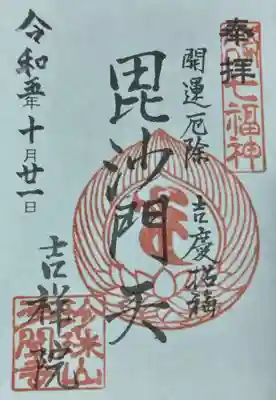 奉拝
七福神
開運厄除
吉慶招福
毘沙門天
吉祥院
令和五年十月廿一日